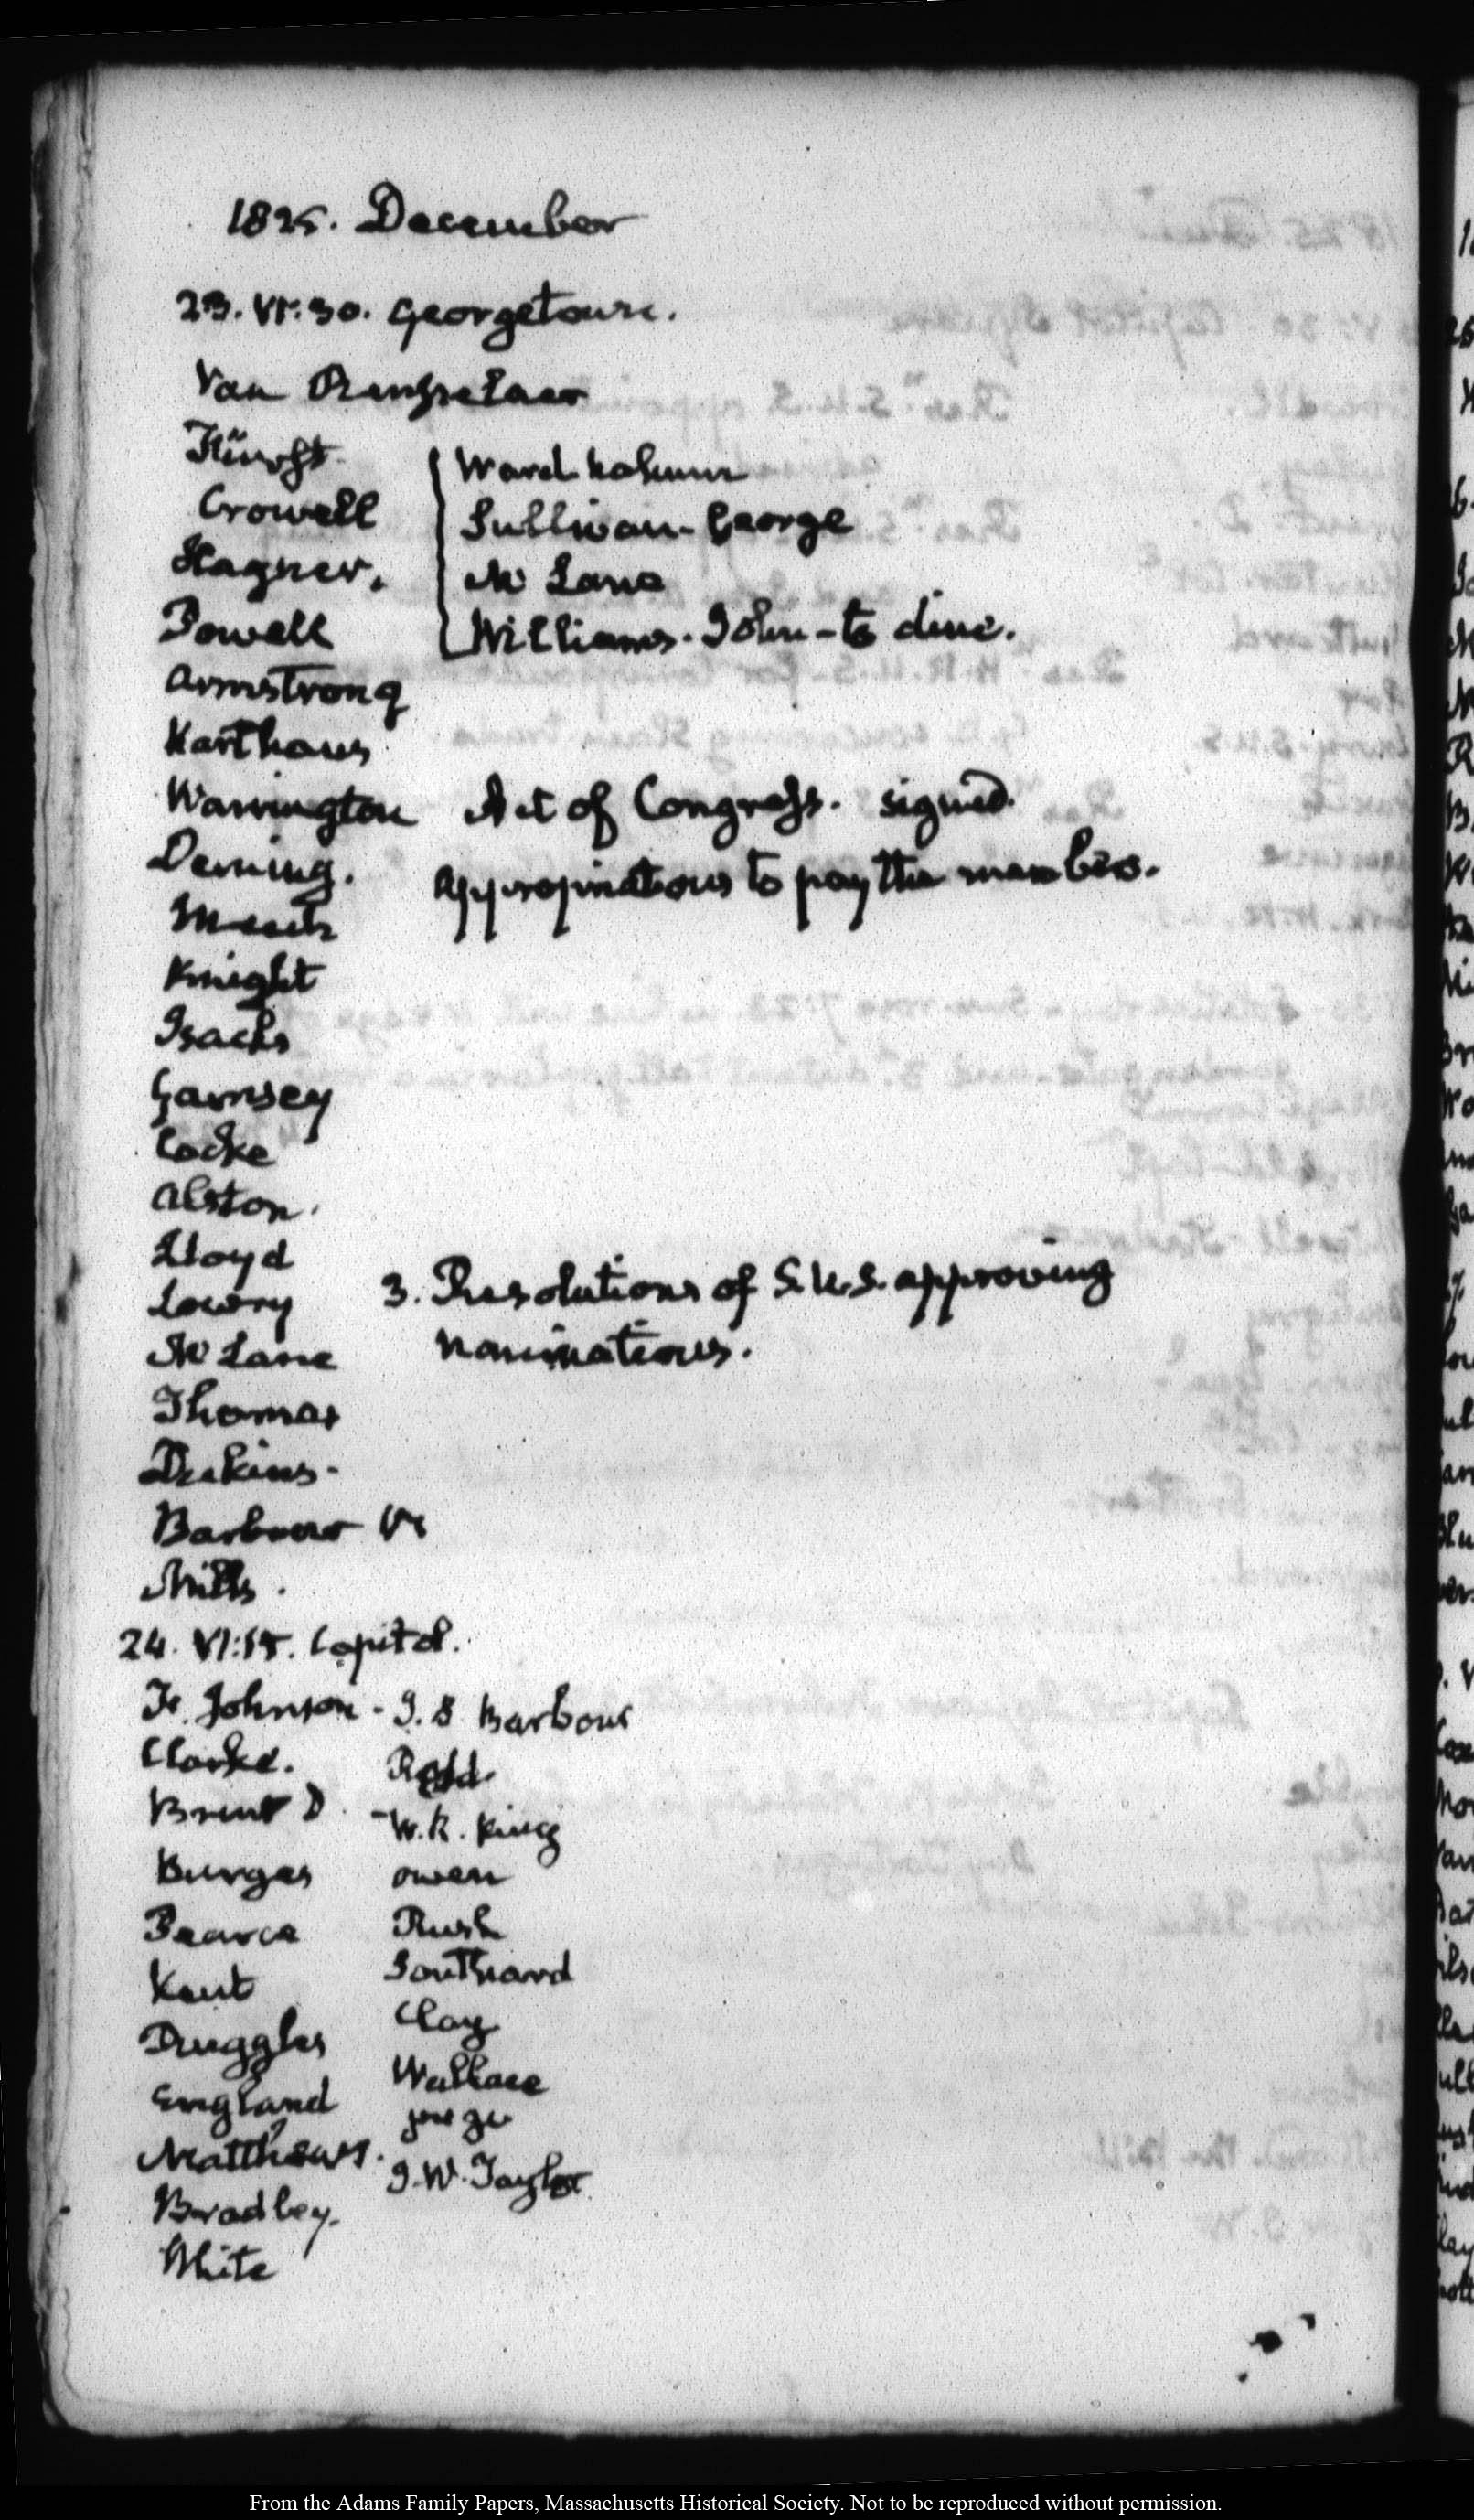 1825. December
23. VI:30. Georgetown.
Van Rensselaer
Hürst.
Crowell
Hagner.
Powell
Ward
Sullivan - George
McLane
Williams. John - to dine.
Armstrong
Karthaus
Warrington
Act of Congress. signed.
Deming.
Appropriations to pay the members.
Meech
Knight
Isacks
Garnsey
Cocke
Alston.
Lloyd
Lowry
3. Resolutions of S.U.S. approving
McLane
nominations.
Thomas
Deakins -
Barbour Vr
Mills.
24. VI:15. Capitol.
Fr. Johnson -
Clarke.
Brent D.
Burges
Pearce
Kent
Ruggles
England
Matthews.
Bradley.
White
J. S. Barbour
- W. R. King
Owen
Rush
Southard
Clay
Wallace
J. W. Taylor
From the Adams Family Papers, Massachusetts Historical Society. Not to be reproduced without permission.